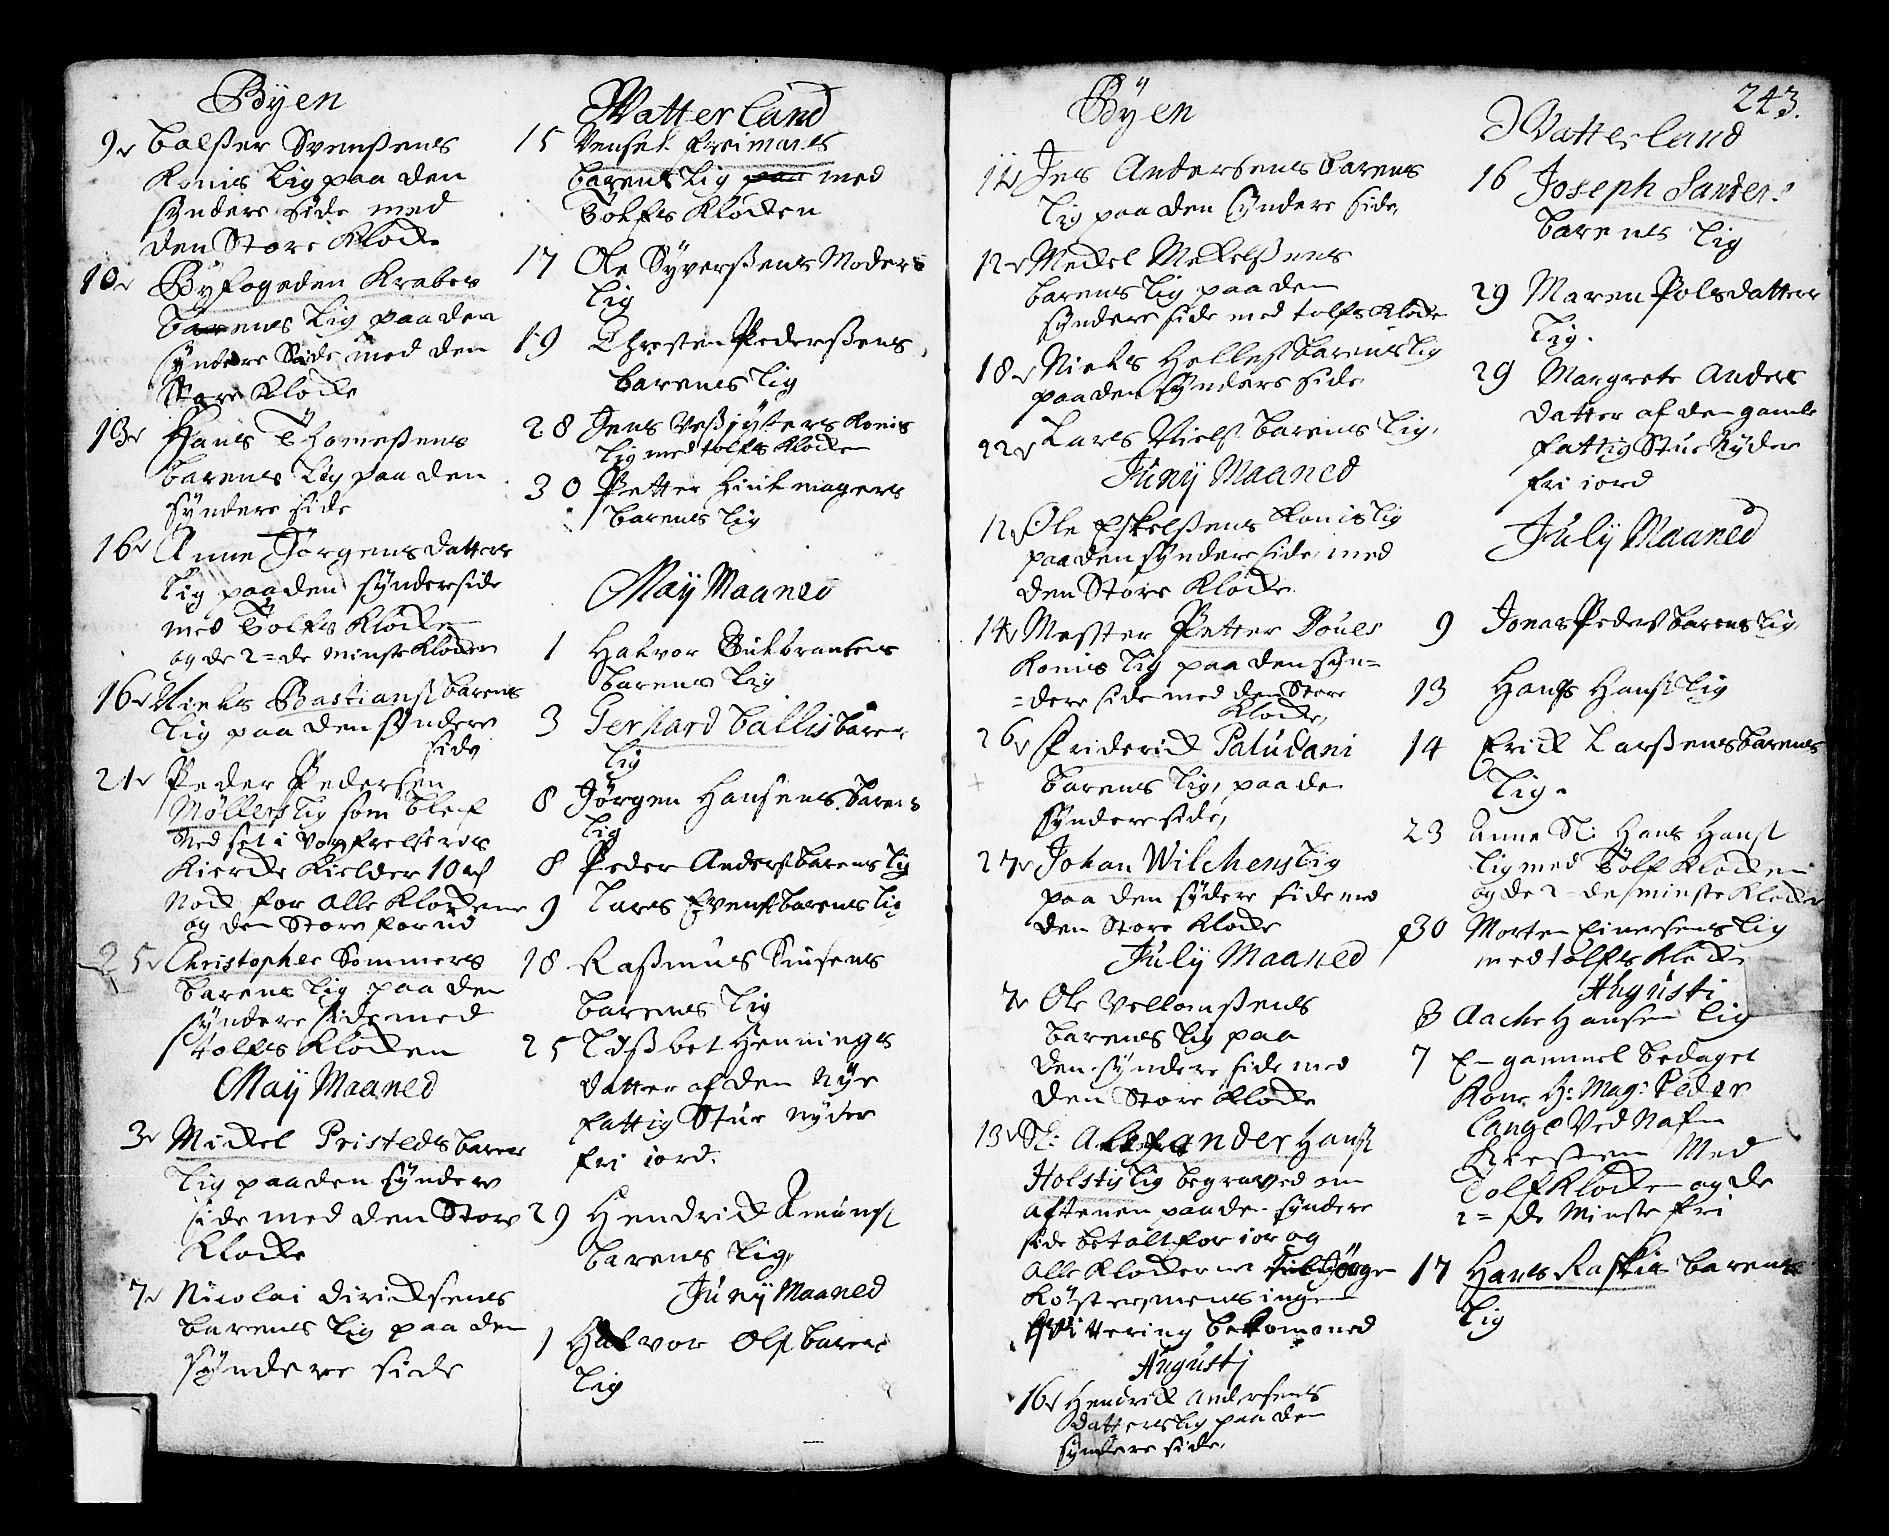 Byen
9 Balßer Svenßens
Konis Lig paa den
syndere side med
den Store Klocke
10 Byfogeden Krabes
barens Lig paa den
syndere Side med den
Store Klocke
13 Hans Thomeßens
barens Lig paa den
syndere side
16 Anne Jørgensdatters
Lig paa den synderside
med Tolfs Klocke
og de 2=de minste Klocker
16 Niels Bastianß barens
Lig paa den syndere
side
21 Peder Pedersen
Møllers Lig som blef
Ned set i Vor frelseris
Kierche Kielder 10
Nock for Alle Klockene
og den Store forud
25 Christopher Sommers
barens Lig paa den
syndere side med
tolfs Klocken
May Maaned
3 Mickel Pristeds barens
Lig paa den syndere
side med den Store
Klocke
7 Nicolai Diricksens
barens Lig paa den
syndere side
Watterland
15 Vensel Freimans
barens Lig paa med
Tolfs Klocken
17 Ole Syverßens Moders
Lig
19 Christen Pederßens
barens Lig
28 Jens Veßjyters Konis
Lig med tolfs Klocken
30 Petter Hiulmagers
barens Lig
May Maaned
1 Halvor Gulbransens
barens Lig
3 Gerhard Ballis barens
Lig
8 Jørgen Hansens barens
Lig
8 Peder Anderß barens Lig
9 Lars Evenß barens Lig
18 Raßmus Knusens
barens Lig
25 Lißbet Hennings
datter af den Nye
fattig Stue nyder
fri iord.
29 Hendrick Knuuß
barens Lig,
Juny Maaned
1 Halvor Olß barens
Lig
Byen
11 Jens Andersens barens
Lig paa den syndere side,
12 Mickel Mickelßens
barens Lig paa den
syndere side med tolfs Klocke
18 Niels Helleß barens Lig
paa den synders side
22 Lars Nielß barens Lig,
Juny Maaned
12 Ole Eskelßens Konis Lig
paa den syndere side med
den Store Klocke
14 Mester Petter Doues
Konis Lig paa den syn=
=dere side med den Store
Klocke,
26 Friderick Paludani
barens Lig, paa den
syndere side,
27 Johan Wilchens Lig
paa den sydere side med
den Store Klocke
July Maaned
7 Ole Vellomßens
barens Lig paa
den syndere side med
den Store Klocke
13 Sl: Alexander Hanß
Holstis Lig begraved om
aftenen paa den syndere
side betalt for ior og
alle Klockerne Jørgen
Køster, mens ingen
Qvittering bekomened
Augustj
16 Hendrick Andersens
datters Lig paa den
syndere side,
243.
Watterland
16 Joseph Sanders
barens Lig
29 Maren Polsdatters
Lig.
29 Margrete Anders
datter af den gamle
fattig Stue Nyder
fri iord
July Maaned
9 Jonas Pederß barens Lig
13 Hans Hanß Lig
14 Erick Larßens barens
Lig.
23 Anne Sl: Hans Hanß
Lig med Tolf Klocken
og de 2=de minste Klocker
30 Morten Einersens Lig
med tolfs Klocke
Augusti
3 Aache Hansen Lig
7 En gammel bedaget
Kone H: Mag: Peder
Lange Ved Nafn
Kiersten Med
Tolf Klocken og de
2=de Minste fri
17 Hans Raskis barens
Lig